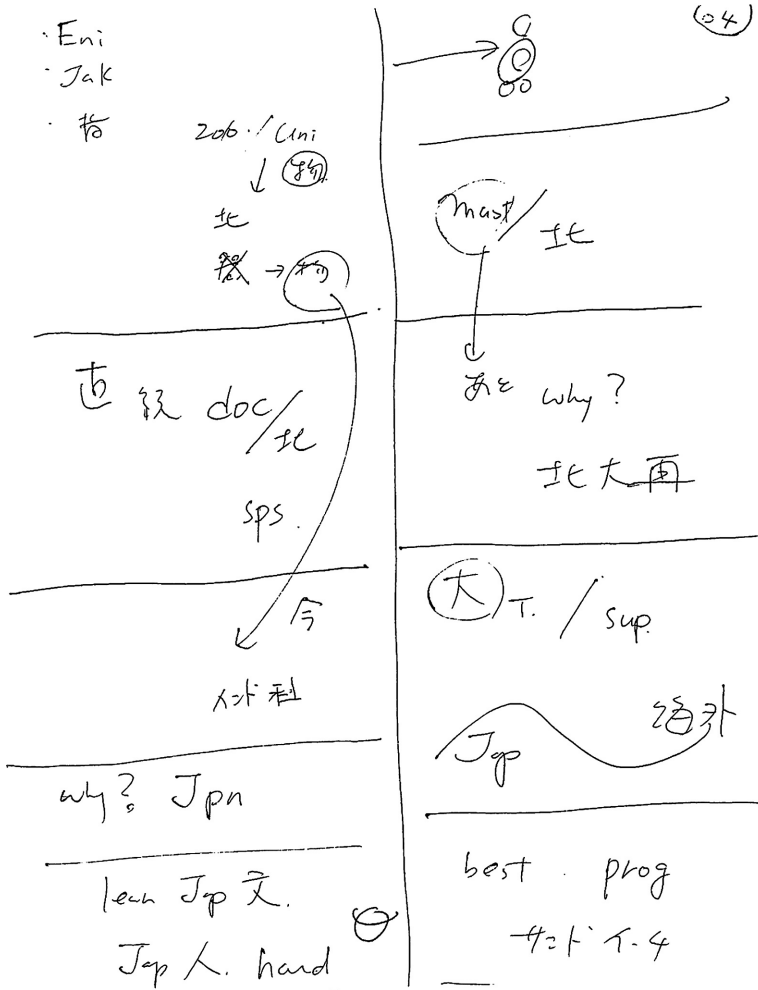 ・Eni
・Jak
・
2010./Uni
↓
北
→
直後 doc/北
sps.
今
インド 科
why? Jpn
learn Jap 文.
Jap 人. hard
04
→
mast/北
あと why?
北大再
大 T. / sup.
Jap 海外
best. prog